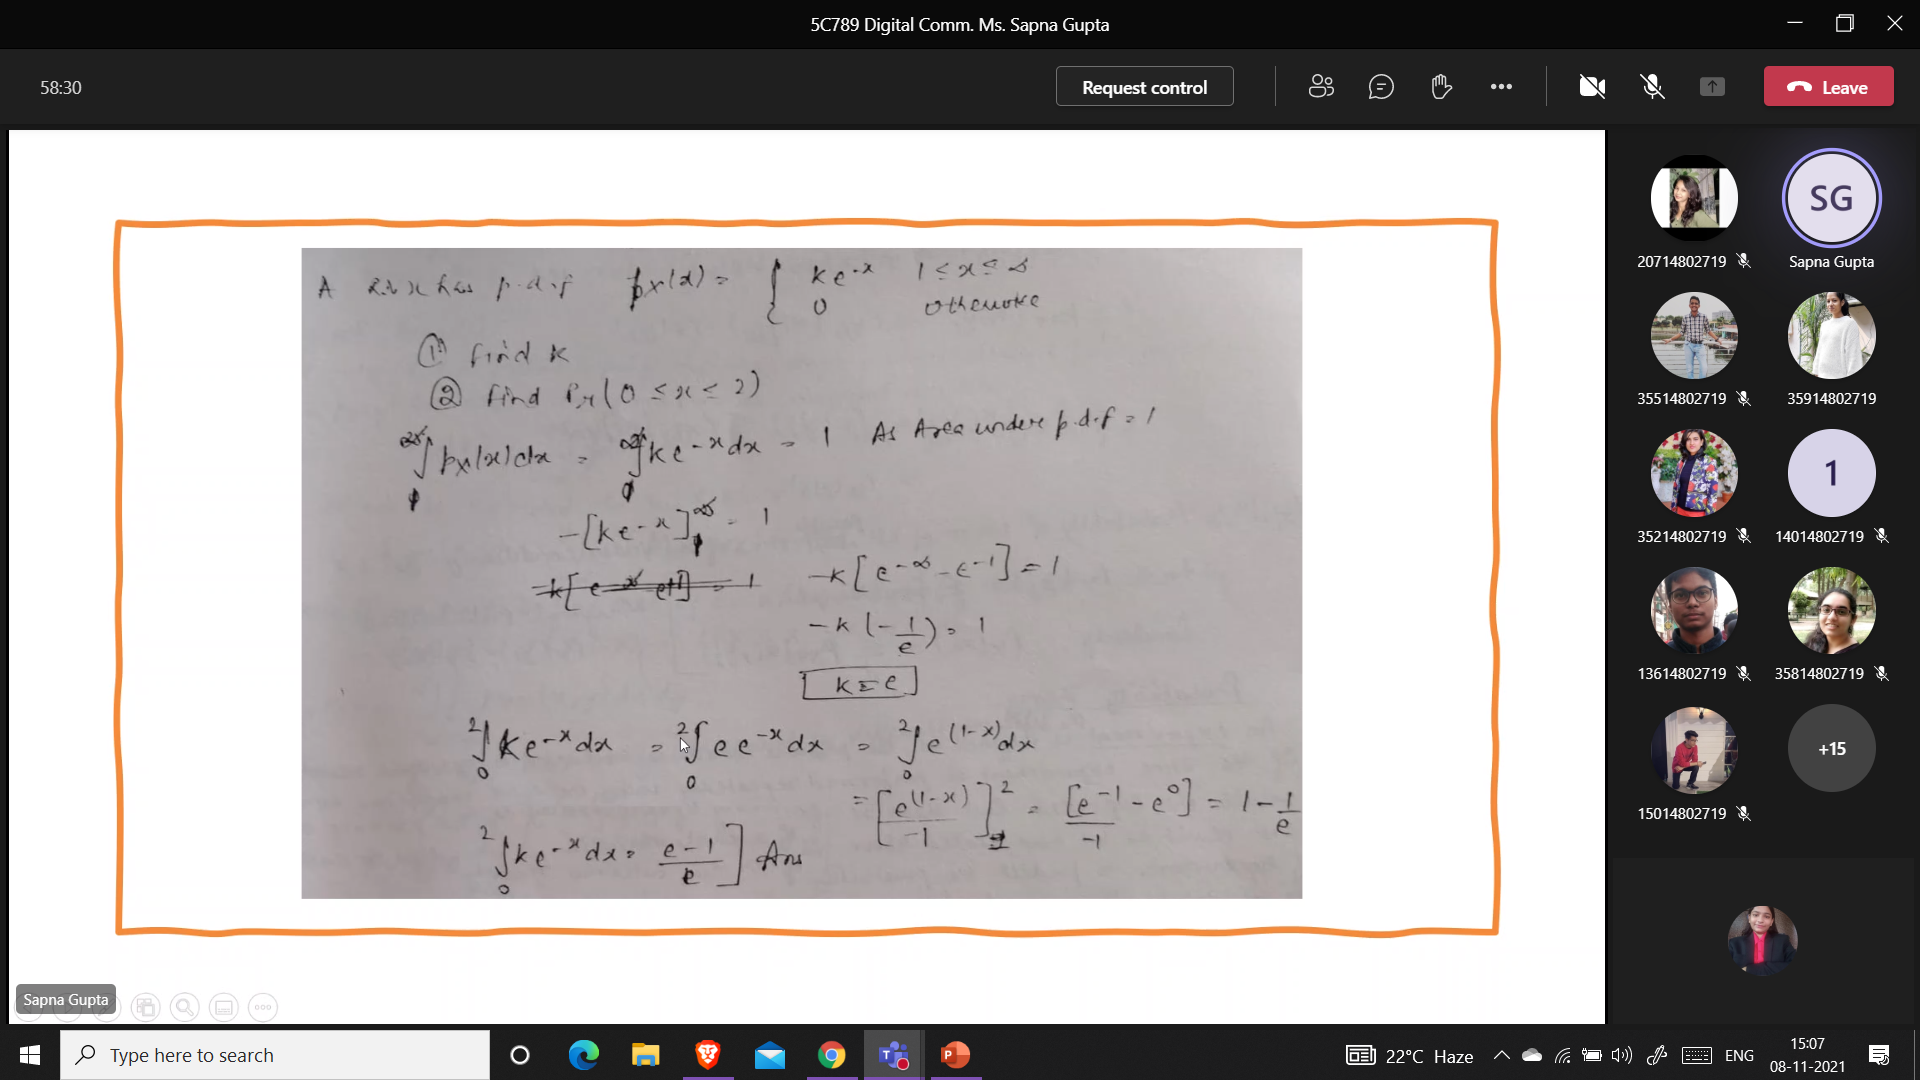 5C789 Digital Comm. Ms. Sapna Gupta
58:30
Request control
Leave
A r.v x has p.d.f px(x) = { ke-x 1 ≤ x ≤ ∞
0 otherwise
① find k
② find Pr(0 ≤ x ≤ 2)
∞∫1 px(x)dx = ∞∫1 ke-xdx = 1 As Area under p.d.f = 1
-[ke-x]∞1 = 1
-k[e-∞ - e-1] = 1
-k(-1/e) = 1
k = e
2∫0 ke-xdx = 2∫0 ee-xdx = 2∫0 e(1-x)dx
= [e(1-x)/-1]2 = [e-1 - e0]/-1 = 1 - 1/e
2∫0 ke-xdx = e-1/e] Ans
20714802719
SG
Sapna Gupta
35514802719
35914802719
35214802719
1
14014802719
13614802719
35814802719
15014802719
+15
Sapna Gupta
Type here to search
22°C Haze
ENG
15:07
08-11-2021